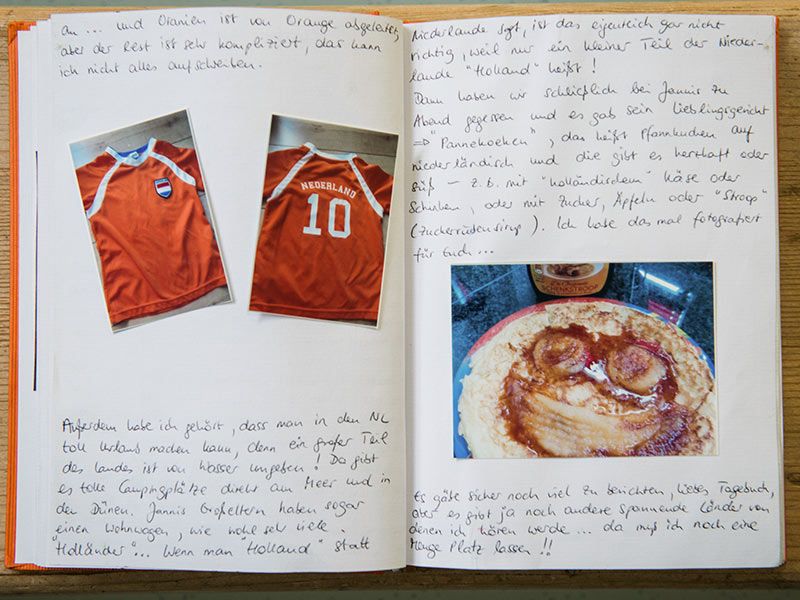 an ... und Oranien ist von Orange abgeleitet,
aber der Rest ist sehr kompliziert, das kann
ich nicht alles aufschreiben.
NEDERLAND
10
Außerdem habe ich gehört, dass man in den NL
toll Urlaub machen kann, denn ein großer Teil
des Landes ist von Wasser umgeben! Da gibt
es tolle Campingplätze direkt am Meer und in
den Dünen. Jannis Großeltern haben sogar
einen Wohnwagen, wie wohl sehr viele
"Holländer"... Wenn man "Holland" statt
Niederlande sagt, ist das eigentlich gar nicht
richtig, weil nur ein kleiner Teil der Nieder-
lande "Holland" heißt!
Dann haben wir schließlich bei Jannis zu
Abend gegessen und es gab sein Lieblingsgericht
⇒ "Pannekoeken", das heißt Pfannkuchen auf
niederländisch und die gibt es herzhaft oder
süß – z.B. mit "holländischem" Käse oder
Schinken, oder mit Zucker, Äpfeln oder "Stroop"
(Zuckerrübensirup). Ich habe das mal fotografiert
für Euch...
SCHENKSTROOP
Es gäbe sicher noch viel zu berichten, liebes Tagebuch,
aber es gibt ja noch andere spannende Länder von
denen ich hören werde... da muß ich noch eine
Menge Platz lassen!!